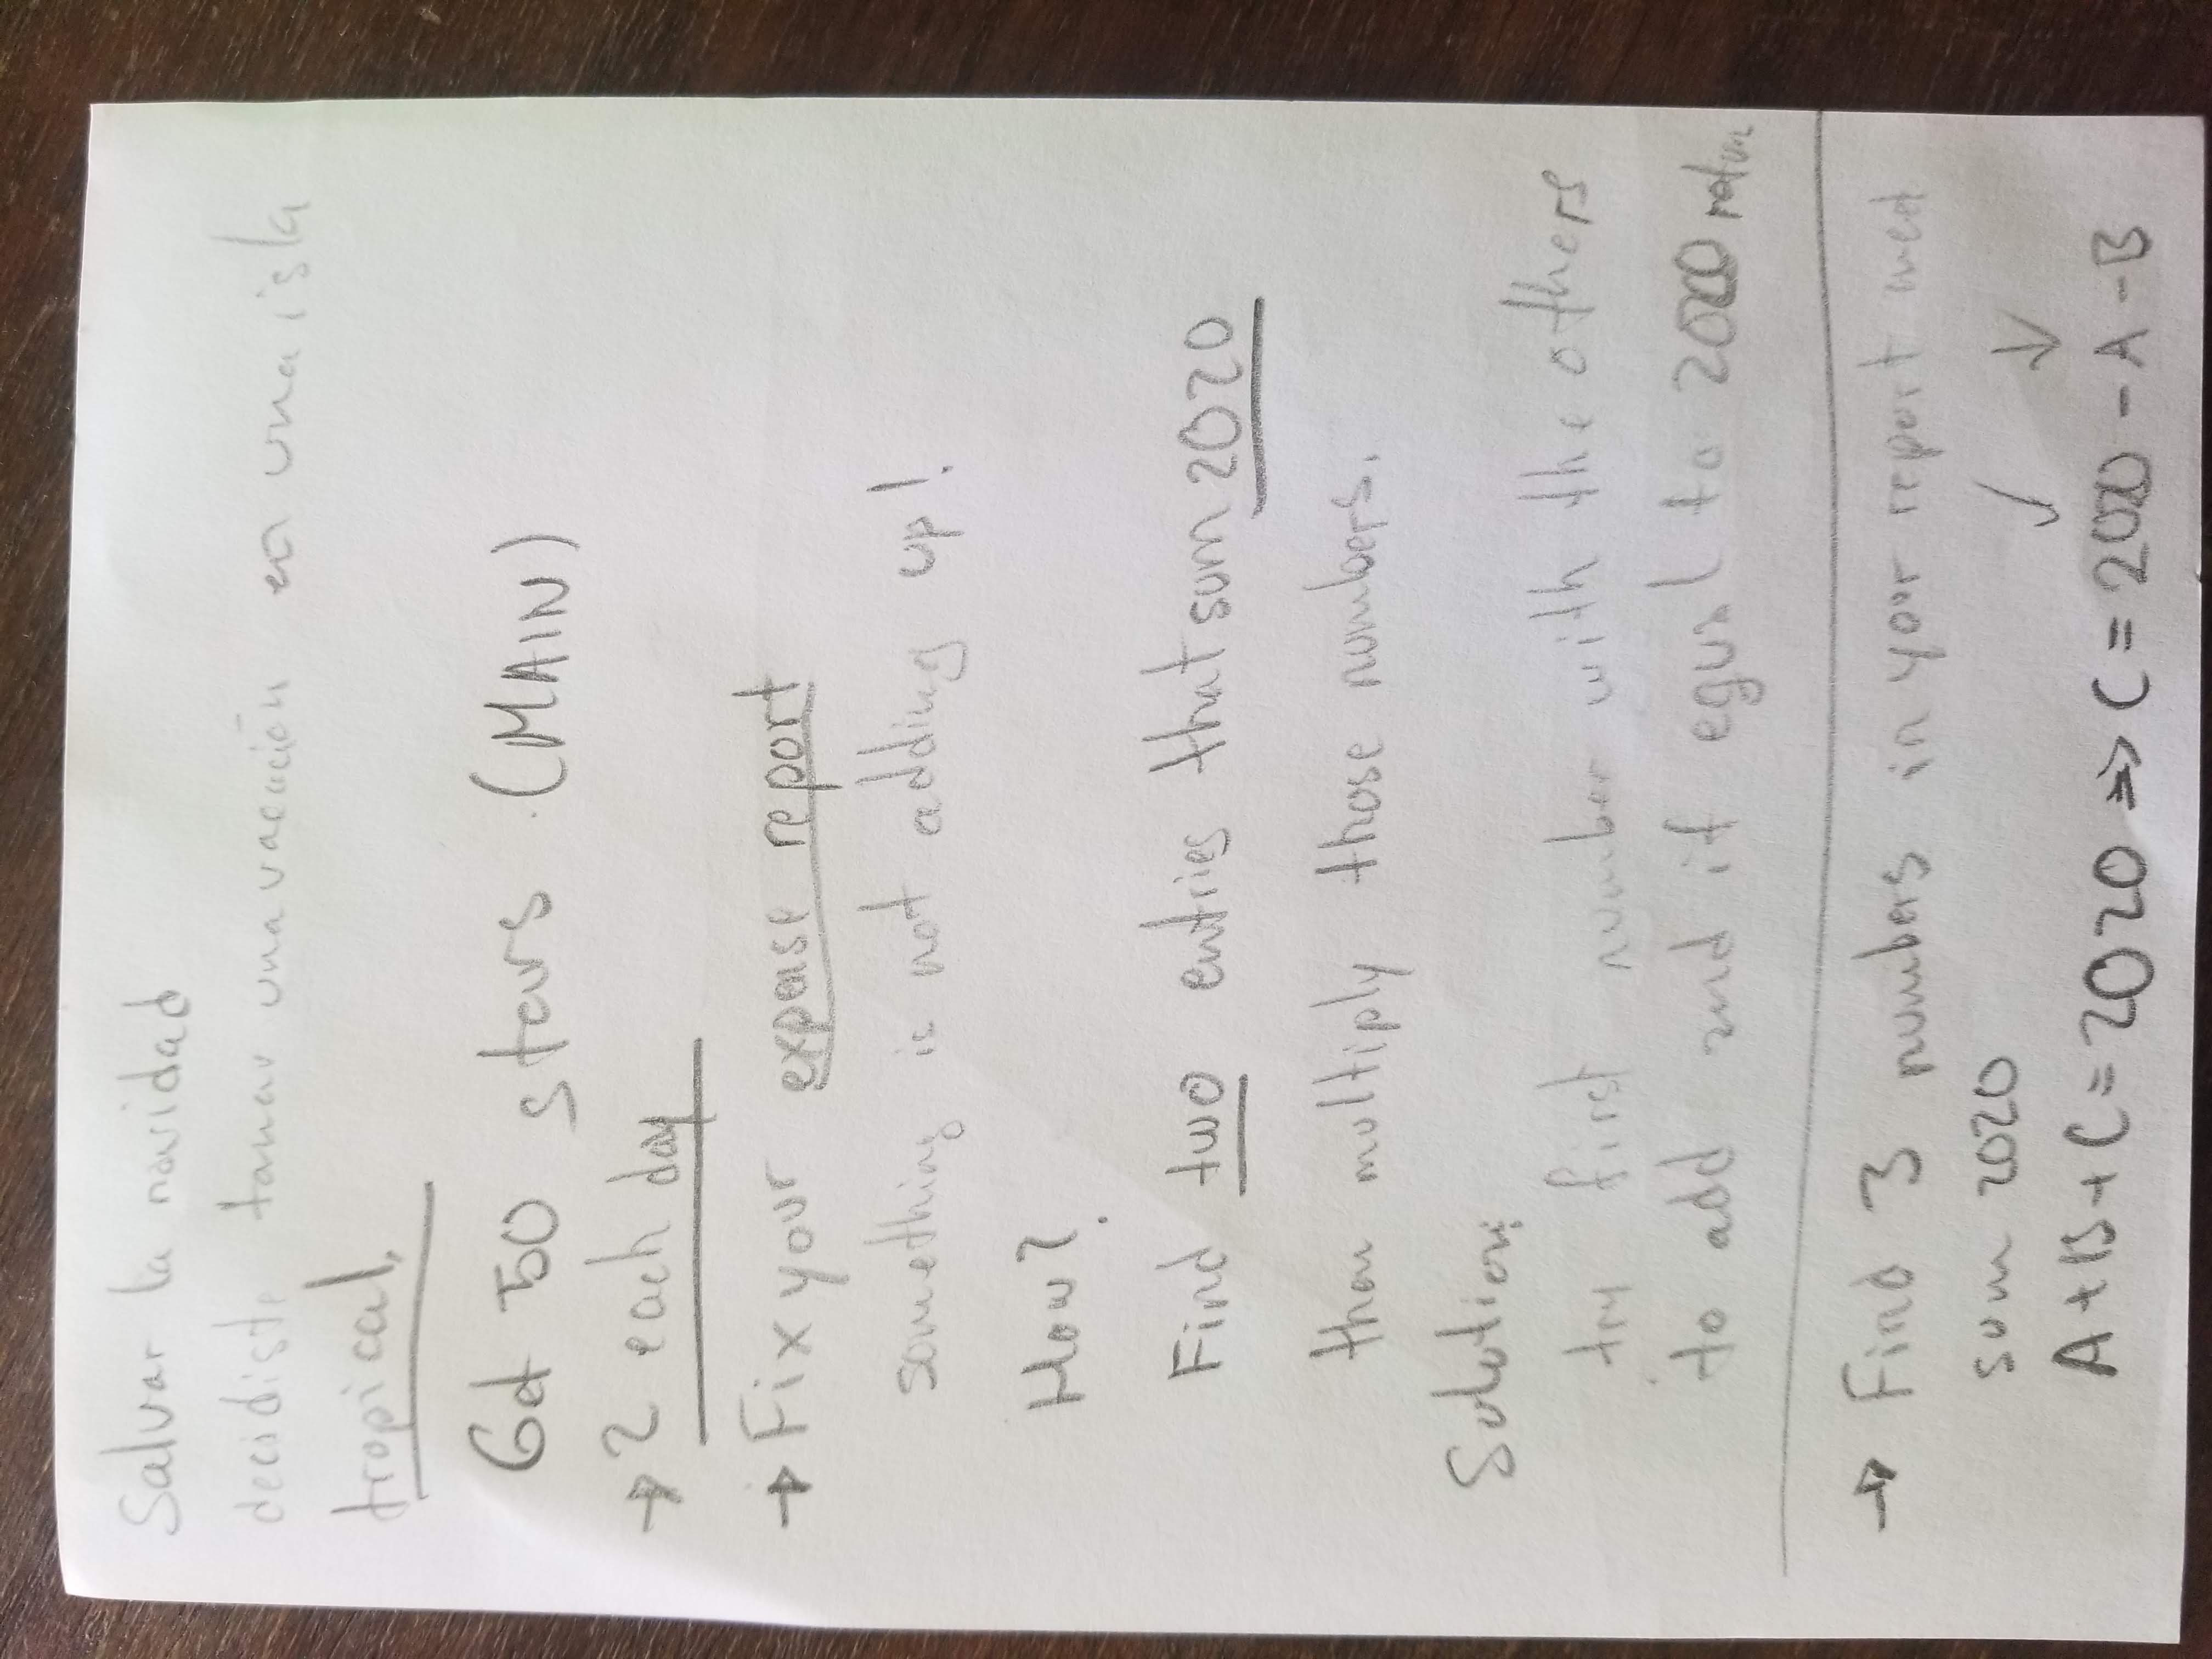 Salvar la navidad
decidiste tomar una vacación en una isla
tropical.
Get 50 stars (MAIN)
→ 2 each day
→ Fix your expense report
something is not adding up!
How?
Find two entries that sum 2020
then multiply those numbers.
Solution:
try first number with the others
to add and if equal to 2020 return
→ Find 3 numbers in your report
sum 2020
A+B+C=2020 => C = 2020 - A - B